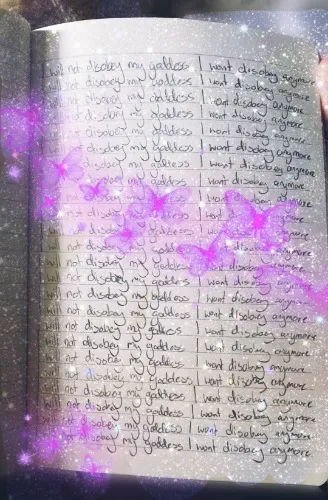 I will not disobey my goddess I wont disobey anymore
I will not disobey my goddess I wont disobey anymore
I will not disobey my goddess I wont disobey anymore
I will not disobey my goddess I wont disobey anymore
I will not disobey my goddess I wont disobey anymore
I will not disobey my goddess I wont disobey anymore
I will not disobey my goddess I wont disobey anymore
will not disobey my goddess I wont disobey anymore
will not disobey my goddess I wont disobey anymore
will not disobey my goddess I wont disobey
will not disobey my goddess I wont disobey anymore
will not disobey my goddess I wont anymore
will not disobey my goddess I wont disobey anymore
will not disobey my goddess I wont disobey anymore
will not disobey my goddess I wont disobey anymore
will not disobey my goddess I wont disobey anymore
will not disobey my goddess I wont disobey anymore
will not disobey my goddess I wont disobey anymore
will not disobey my goddess I wont disobey anymore
will not disobey my goddess I wont disobey anymore
will not disobey my goddess I wont disobey anymore
will not disobey my goddess I wont disobey anymore
will not disobey my goddess I wont disobey anymore
not disobey my goddess I wont disobey anymore